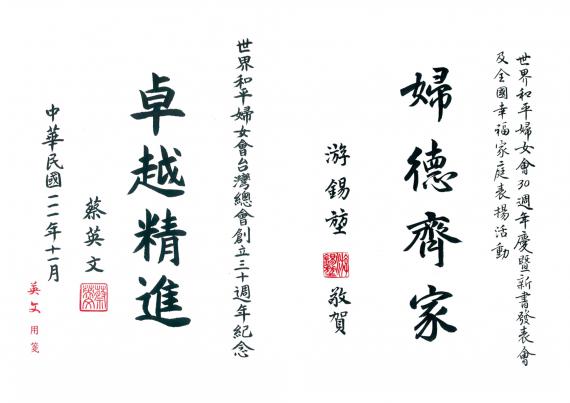 世界和平婦女會30週年慶暨新書發表會
及全國幸福家庭表揚活動
婦德齊家
游錫堃
敬賀
世界和平婦女會台灣總會創立三十週年紀念
卓越精進
蔡英文
中華民國一一一年十一月
英文
用箋